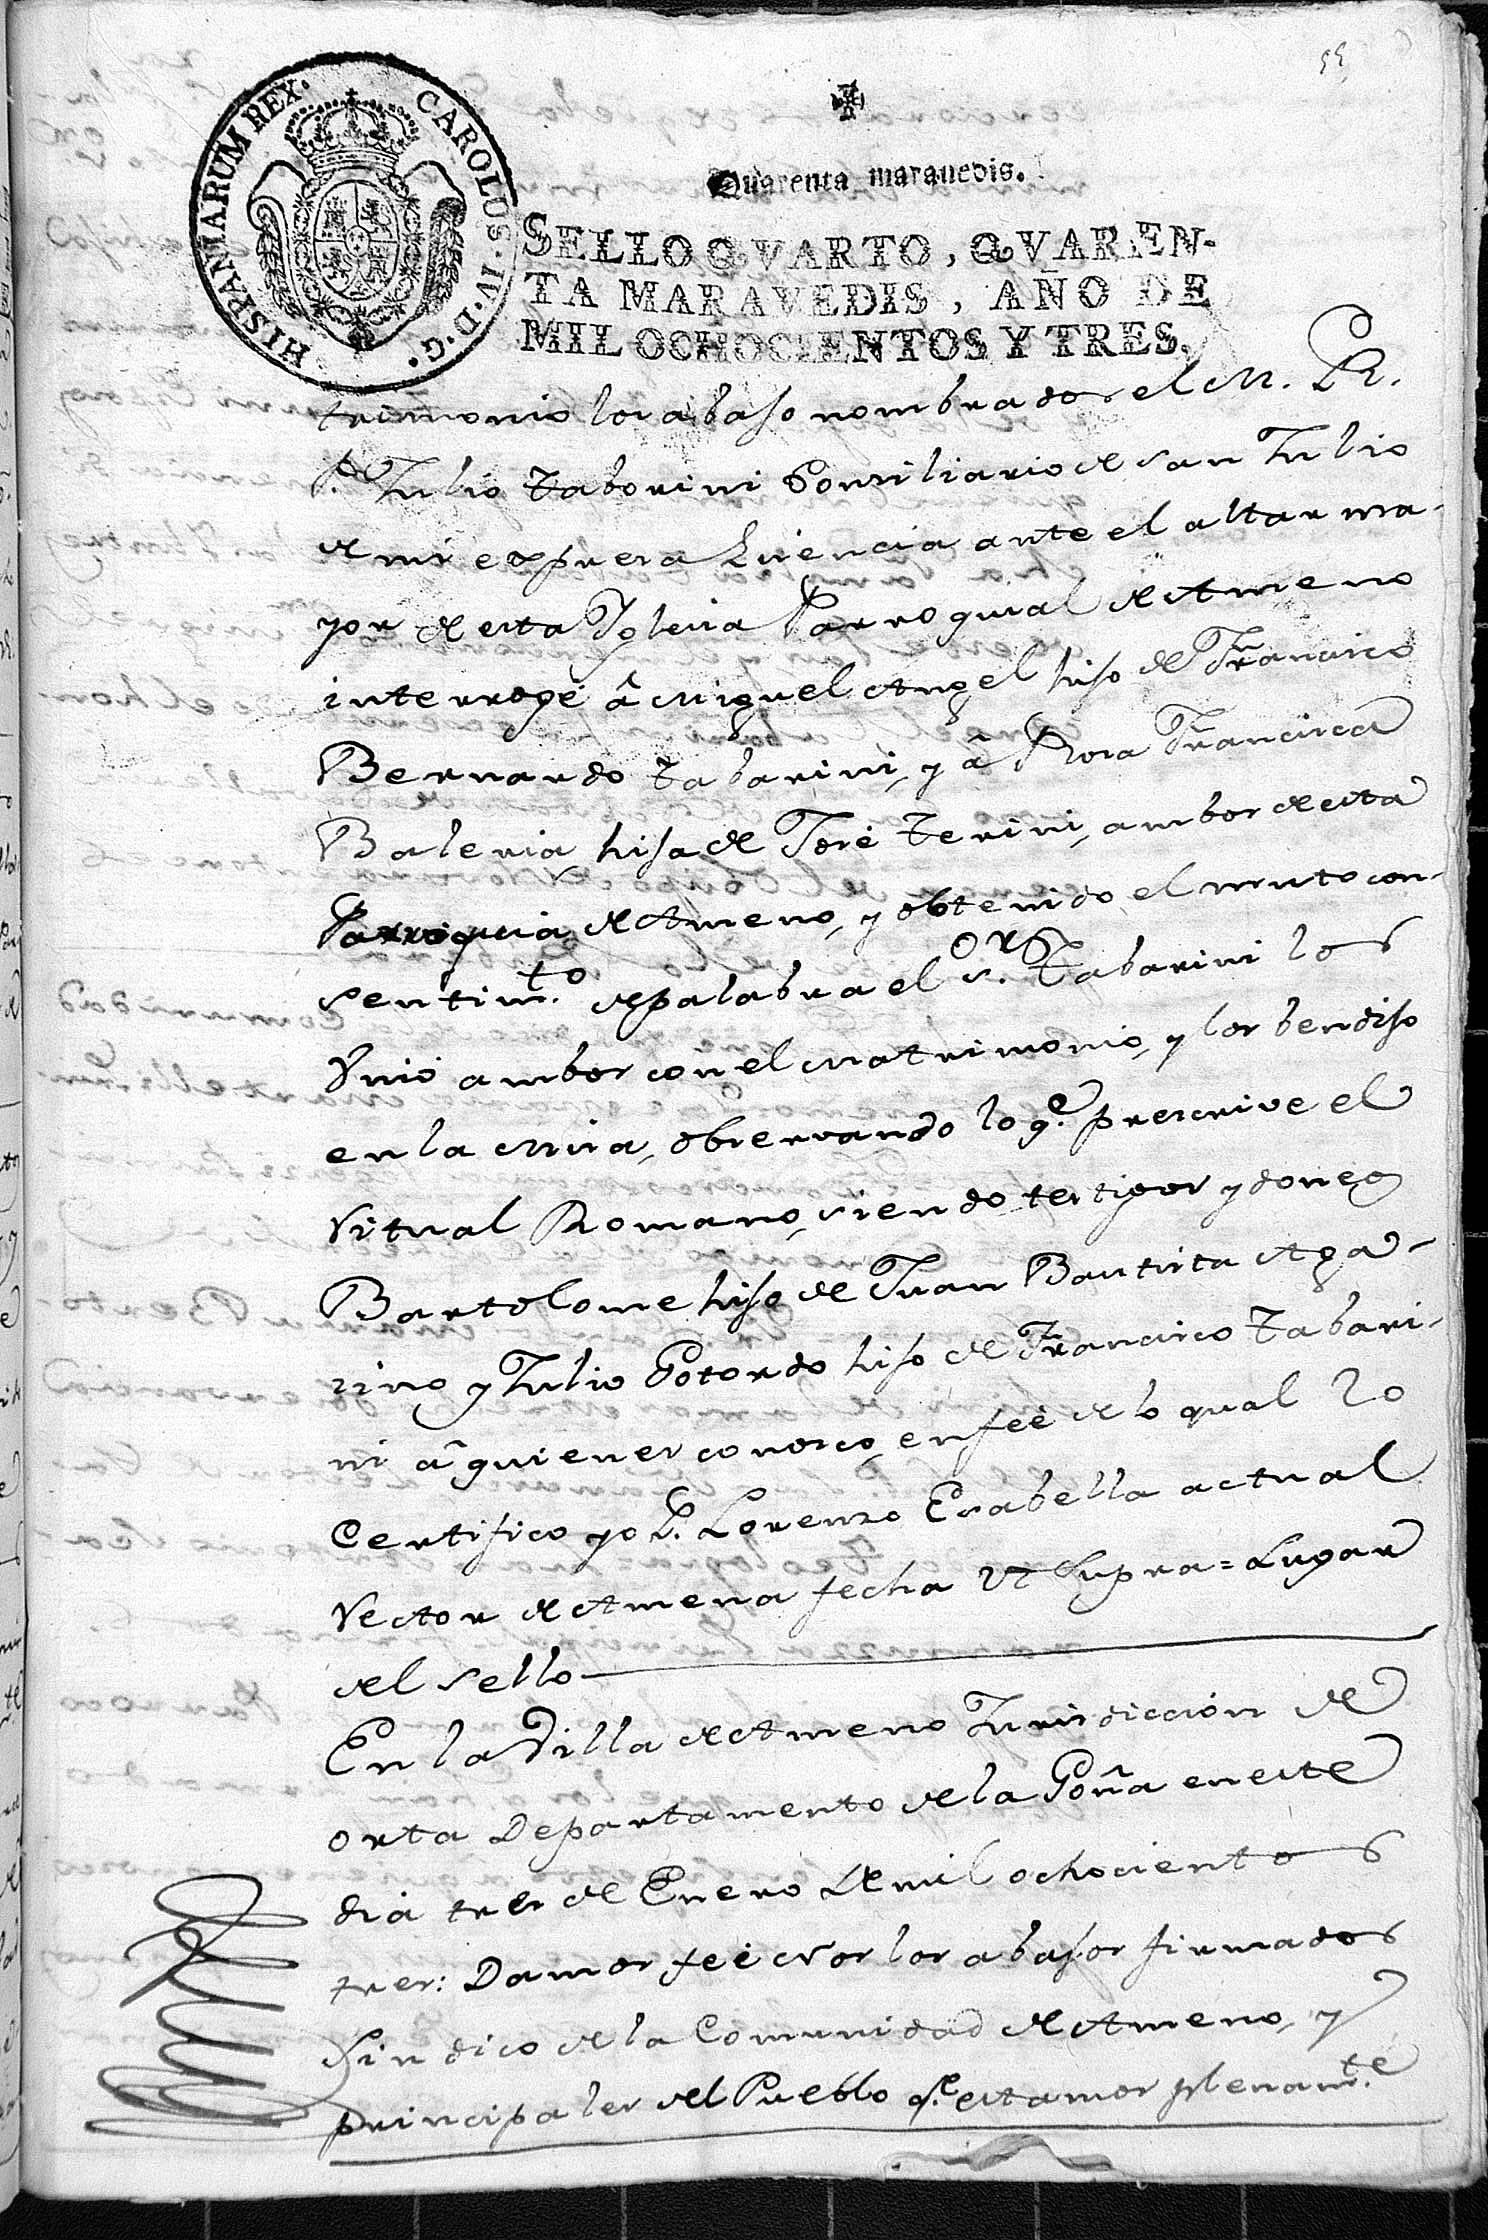 55
HISPANIARUM REX. CAROLUS. IV. D. G.
Quarenta maravedis.
SELLO QVARTO, QVAREN-
TA MARAVEDIS, AÑO DE
MIL OCHOCIENTOS Y TRES.
trimonio los abajo nombrados el M. R.
Julio Taborini Consiliario de san Julio
de mi expresa Licencia ante el altar ma-
yor de esta Iglesia Parroquial de Ameno
interroge â Miguel Angel hijo de Francisco
Bernardo Tabarini, y â Rosa Francisca
Baleria hija de José Terini, ambos de esta
Parroquia de Ameno, y obtenido el mutuo con-
sentim.to de palabra el s.or Tabarini los
Vnió ambos con el Matrimonio, y los bendijo
en la Missa, observando lo q.e prescrive el
Ritual Romano, siendo testigos ydoneos
Bartolome hijo de Juan Bautista Aga-
zino y Julio Gotardo hijo de Francisco Tabari-
ni â quienes conosco, en feé de lo qual lo
Certifico yo P. Lorenzo Erabella actual
Rector de Amena fecha ut supra = Lugar
del sello
En la Villa de Ameno Jurisdiccion de
orta Departamento de la Goña en este
dia tres de Enero de mil ochocientos
tres: Damos feé Nos los abajos firmados
Sindico de la Comunidad de Ameno, y
principales del Pueblo q.e estamos plenam.te